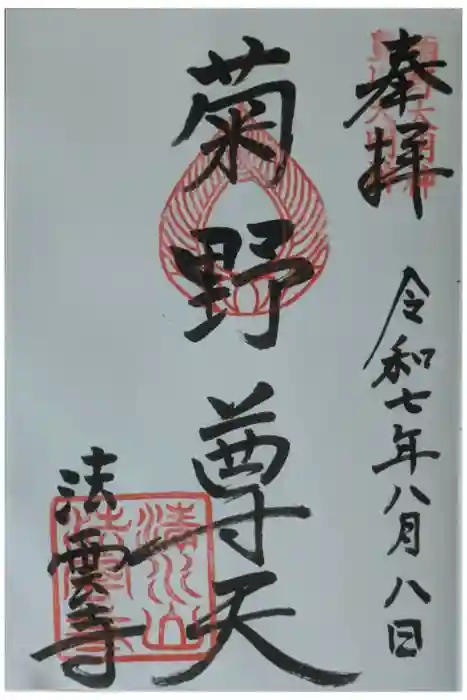 奉拝
令和七年八月八日
菊野尊天
法雲寺
清水山
法雲寺